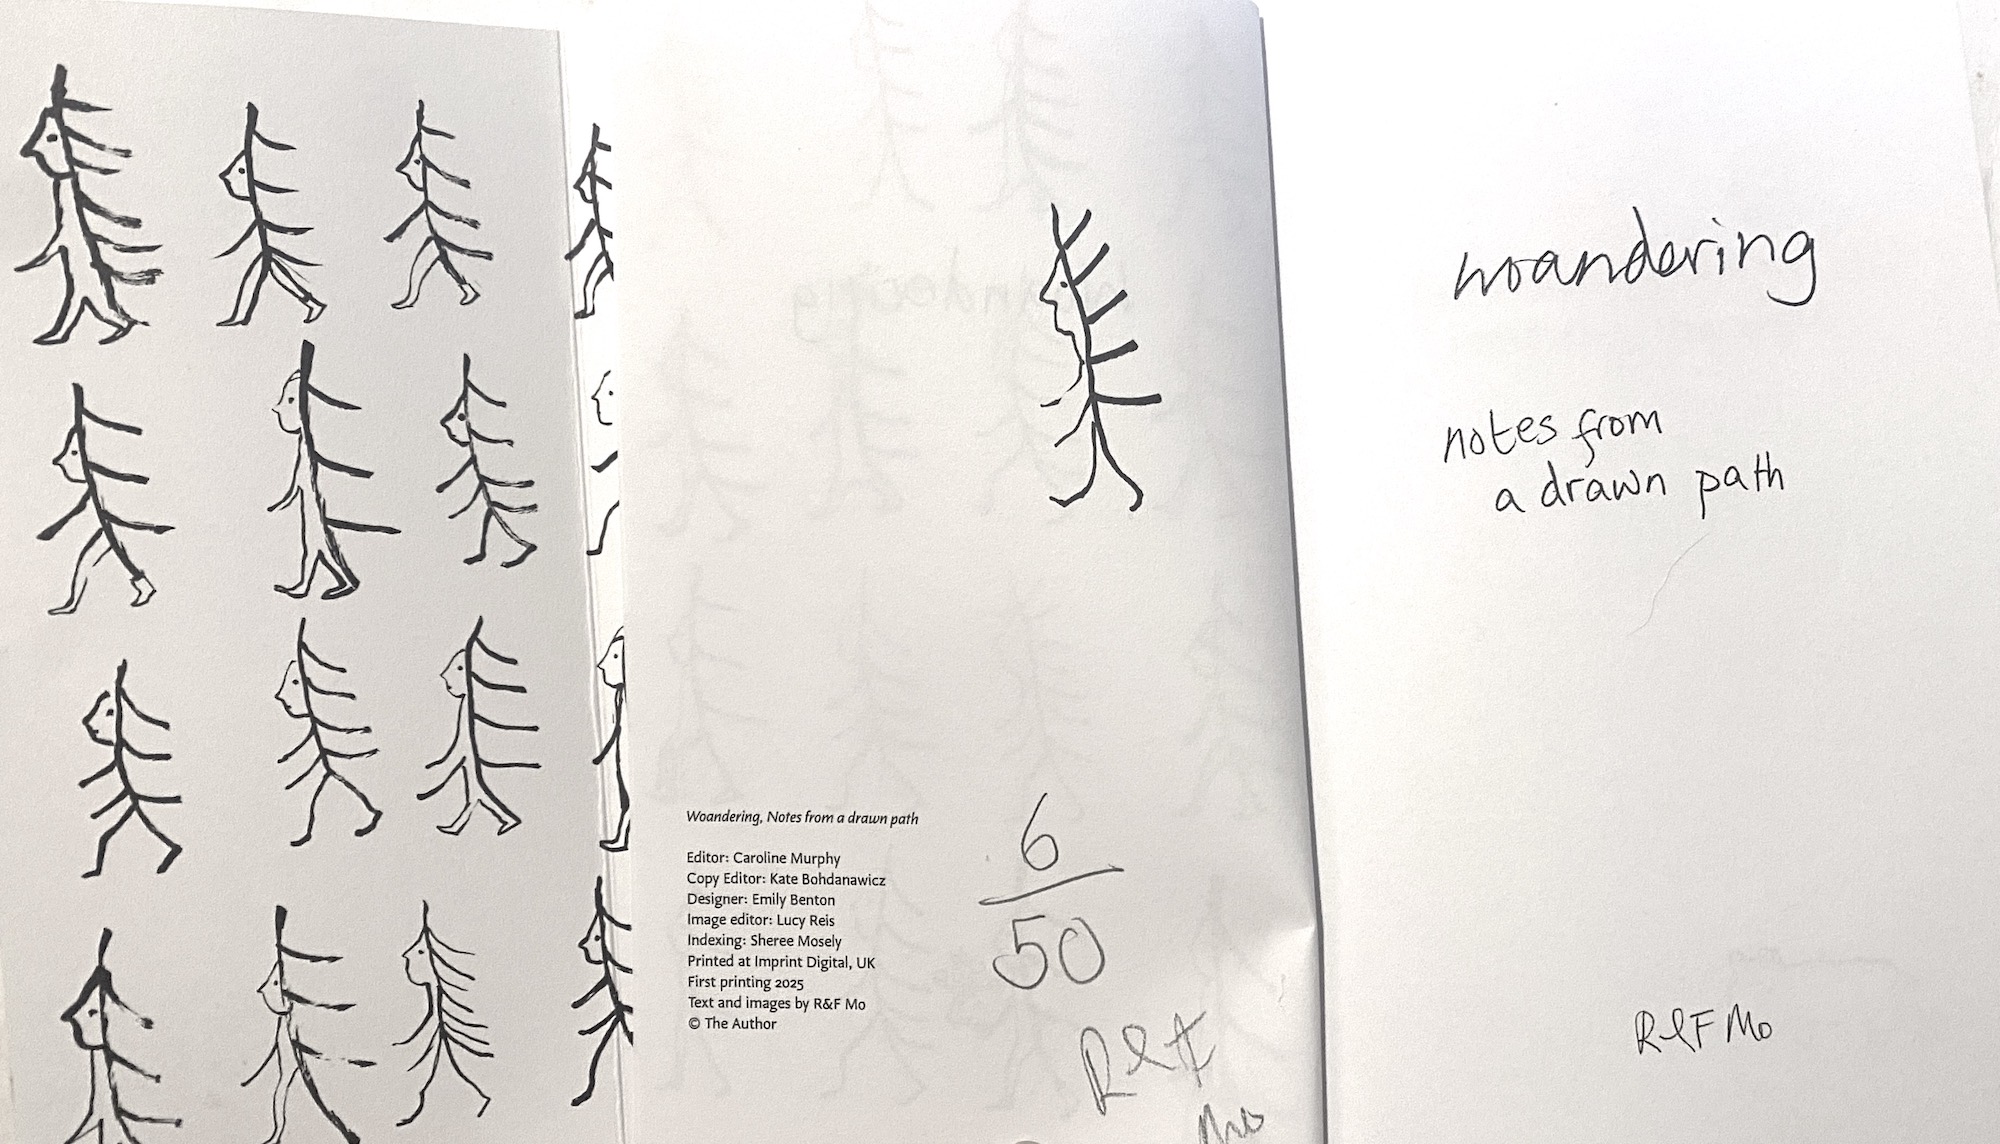 Woandering, Notes from a drawn path
Editor: Caroline Murphy
Copy Editor: Kate Bohdanawicz
Designer: Emily Benton
Image editor: Lucy Reis
Indexing: Sheree Mosely
Printed at Imprint Digital, UK
First printing 2025
Text and images by R&F Mo
© The Author
6
50
R&F
Mo
woandering
notes from
a drawn path
R&F Mo